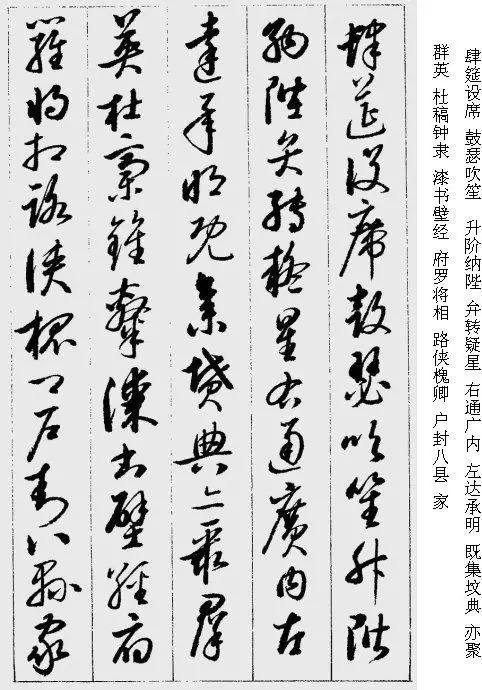 肆筵设席 鼓瑟吹笙 升阶纳陛 弁转疑星 右通广内 左达承明 既集坟典 亦聚
群英 杜稿钟隶 漆书壁经 府罗将相 路侠槐卿 户封八县 家
肆筵設席鼓瑟吹笙升階
納陛弁轉疑星右通廣内左
達承明既集墳典亦聚羣
英杜稾鍾隸漆書壁經府
羅將相路俠槐卿户封八縣家